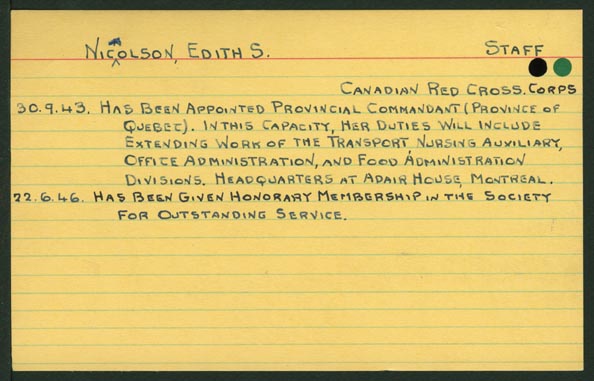 NICOLSON, EDITH S. STAFF
CANADIAN RED CROSS. CORPS
30.9.43. HAS BEEN APPOINTED PROVINCIAL COMMANDANT (PROVINCE OF
QUEBEC). IN THIS CAPACITY, HER DUTIES WILL INCLUDE
EXTENDING WORK OF THE TRANSPORT, NURSING AUXILIARY,
OFFICE ADMINISTRATION, AND FOOD ADMINISTRATION
DIVISIONS. HEADQUARTERS AT ADAIR HOUSE, MONTREAL.
22.6.46. HAS BEEN GIVEN HONORARY MEMBERSHIP IN THE SOCIETY
FOR OUTSTANDING SERVICE.